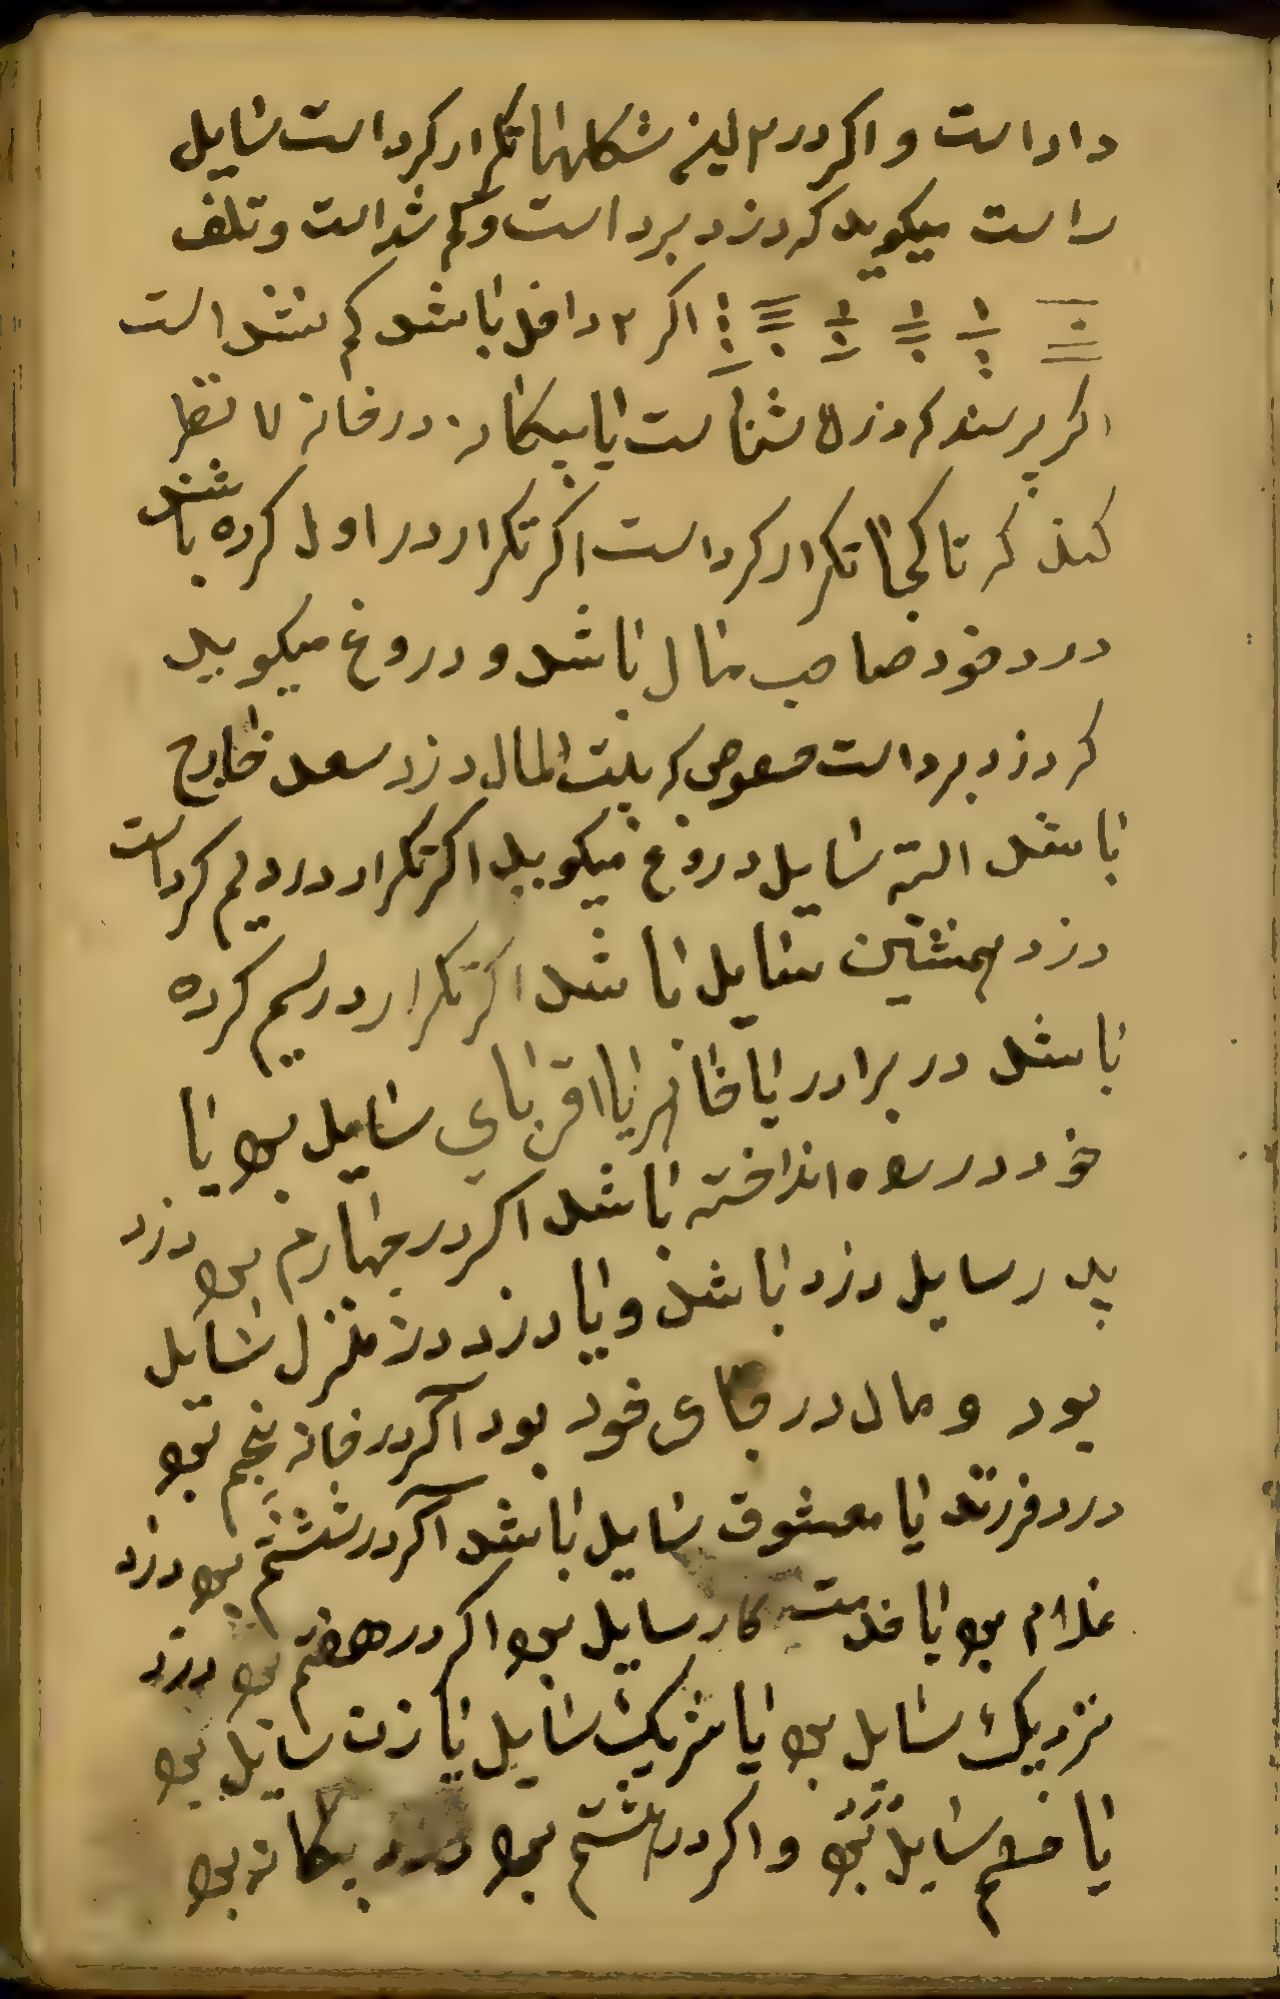 داداست و اکر در ۲ لین شکلها تکرار کرداست سایل
راست میکوید که دزد برداست و کم شداست و تلف
اکر ۲ داخل باشد کم نشداست
اکر پرسند که دزد شناست یا بیکانه در خانه ۷ نظر
کند که تا کجا تکرار کرداست اکر تکرار در اول کرده باشد
درد خود صاحب مال باشد و دروغ میکوید
که دزد برداست خصوص که بیت المال دزد سعد خارج
باشد البته سایل دروغ میکوید اکر تکرار در دیم کرداست
دزد همنشین سایل باشد اکر تکرار در سیم کرده
باشد در برادر یا خاهر یا اقربای سایل بود یا
خود در راه انداخته باشد اکر در چهارم بود دزد
پدر سایل دزد باشد و یا دزد در منزل سایل
بود و مال در جای خود بود اکر در خانه پنجم بود
درد فرزند یا معشوق سایل باشد اکر در ششم بود دزد
غلام بود یا خدمت کار سایل بود اکر در هفتم بود دزد
نزدیک سایل بود یا شریک سایل یا زن سایل بود
یا خصم سایل بود و اکر در هشتم بود دزد بیکانه بود